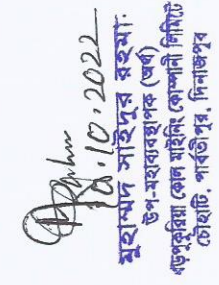 10.10.2022
মুহাম্মদ সাইদুর রহমা
উপ-মহাব্যবস্থাপক (অর্থ)
বড়পুকুরিয়া কোল মাইনিং কোম্পানী লিমিটে
চৌহাটি, পার্বতীপুর, দিনাজপুর